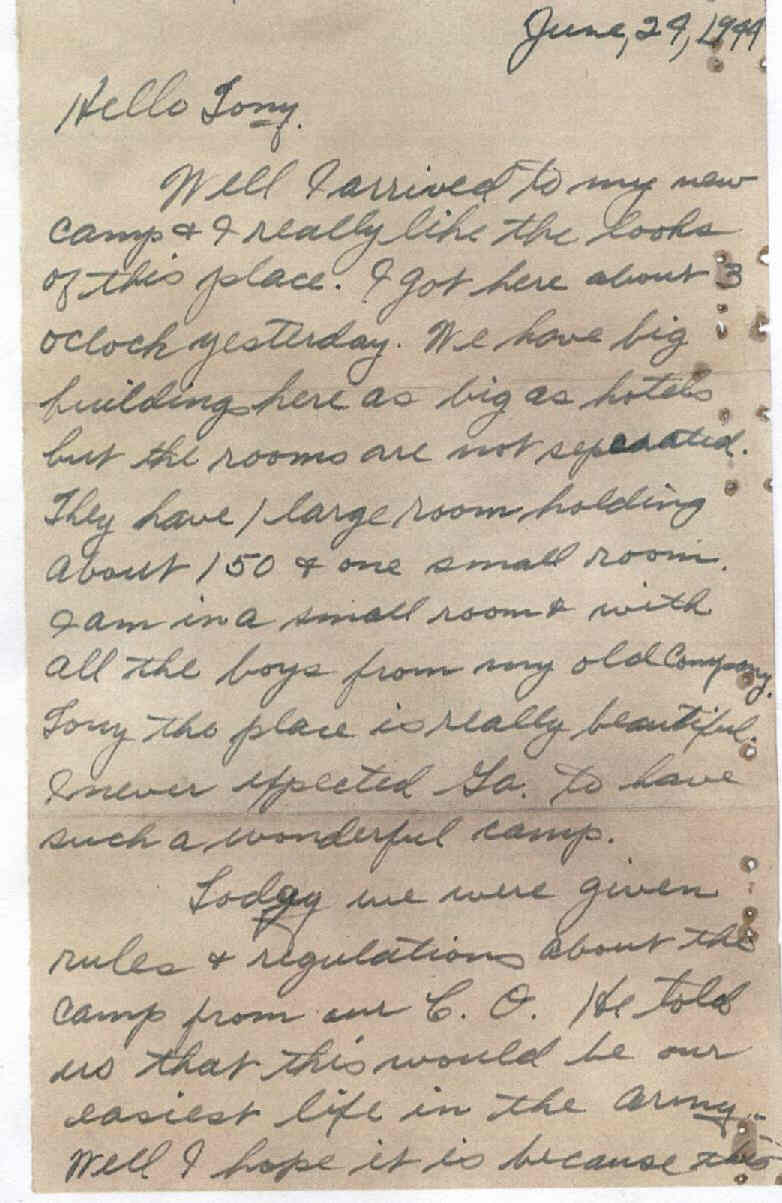 June, 29, 1944
Hello Tony.
Well I arrived to my new
camp & I really like the looks
of this place. I got here about 3
oclock yesterday. We have big
buildings here as big as hotels
but the rooms are not seperated.
They have 1 large room holding
about 150 & one small room.
I am in a small room & with
all the boys from my old Company.
Tony the place is really beautiful.
I never expected Ga. to have
such a wonderful camp.
Today we were given
rules & regulations about the
camp from our C. O. He told
us that this would be our
easiest life in the army.
Well I hope it is because this